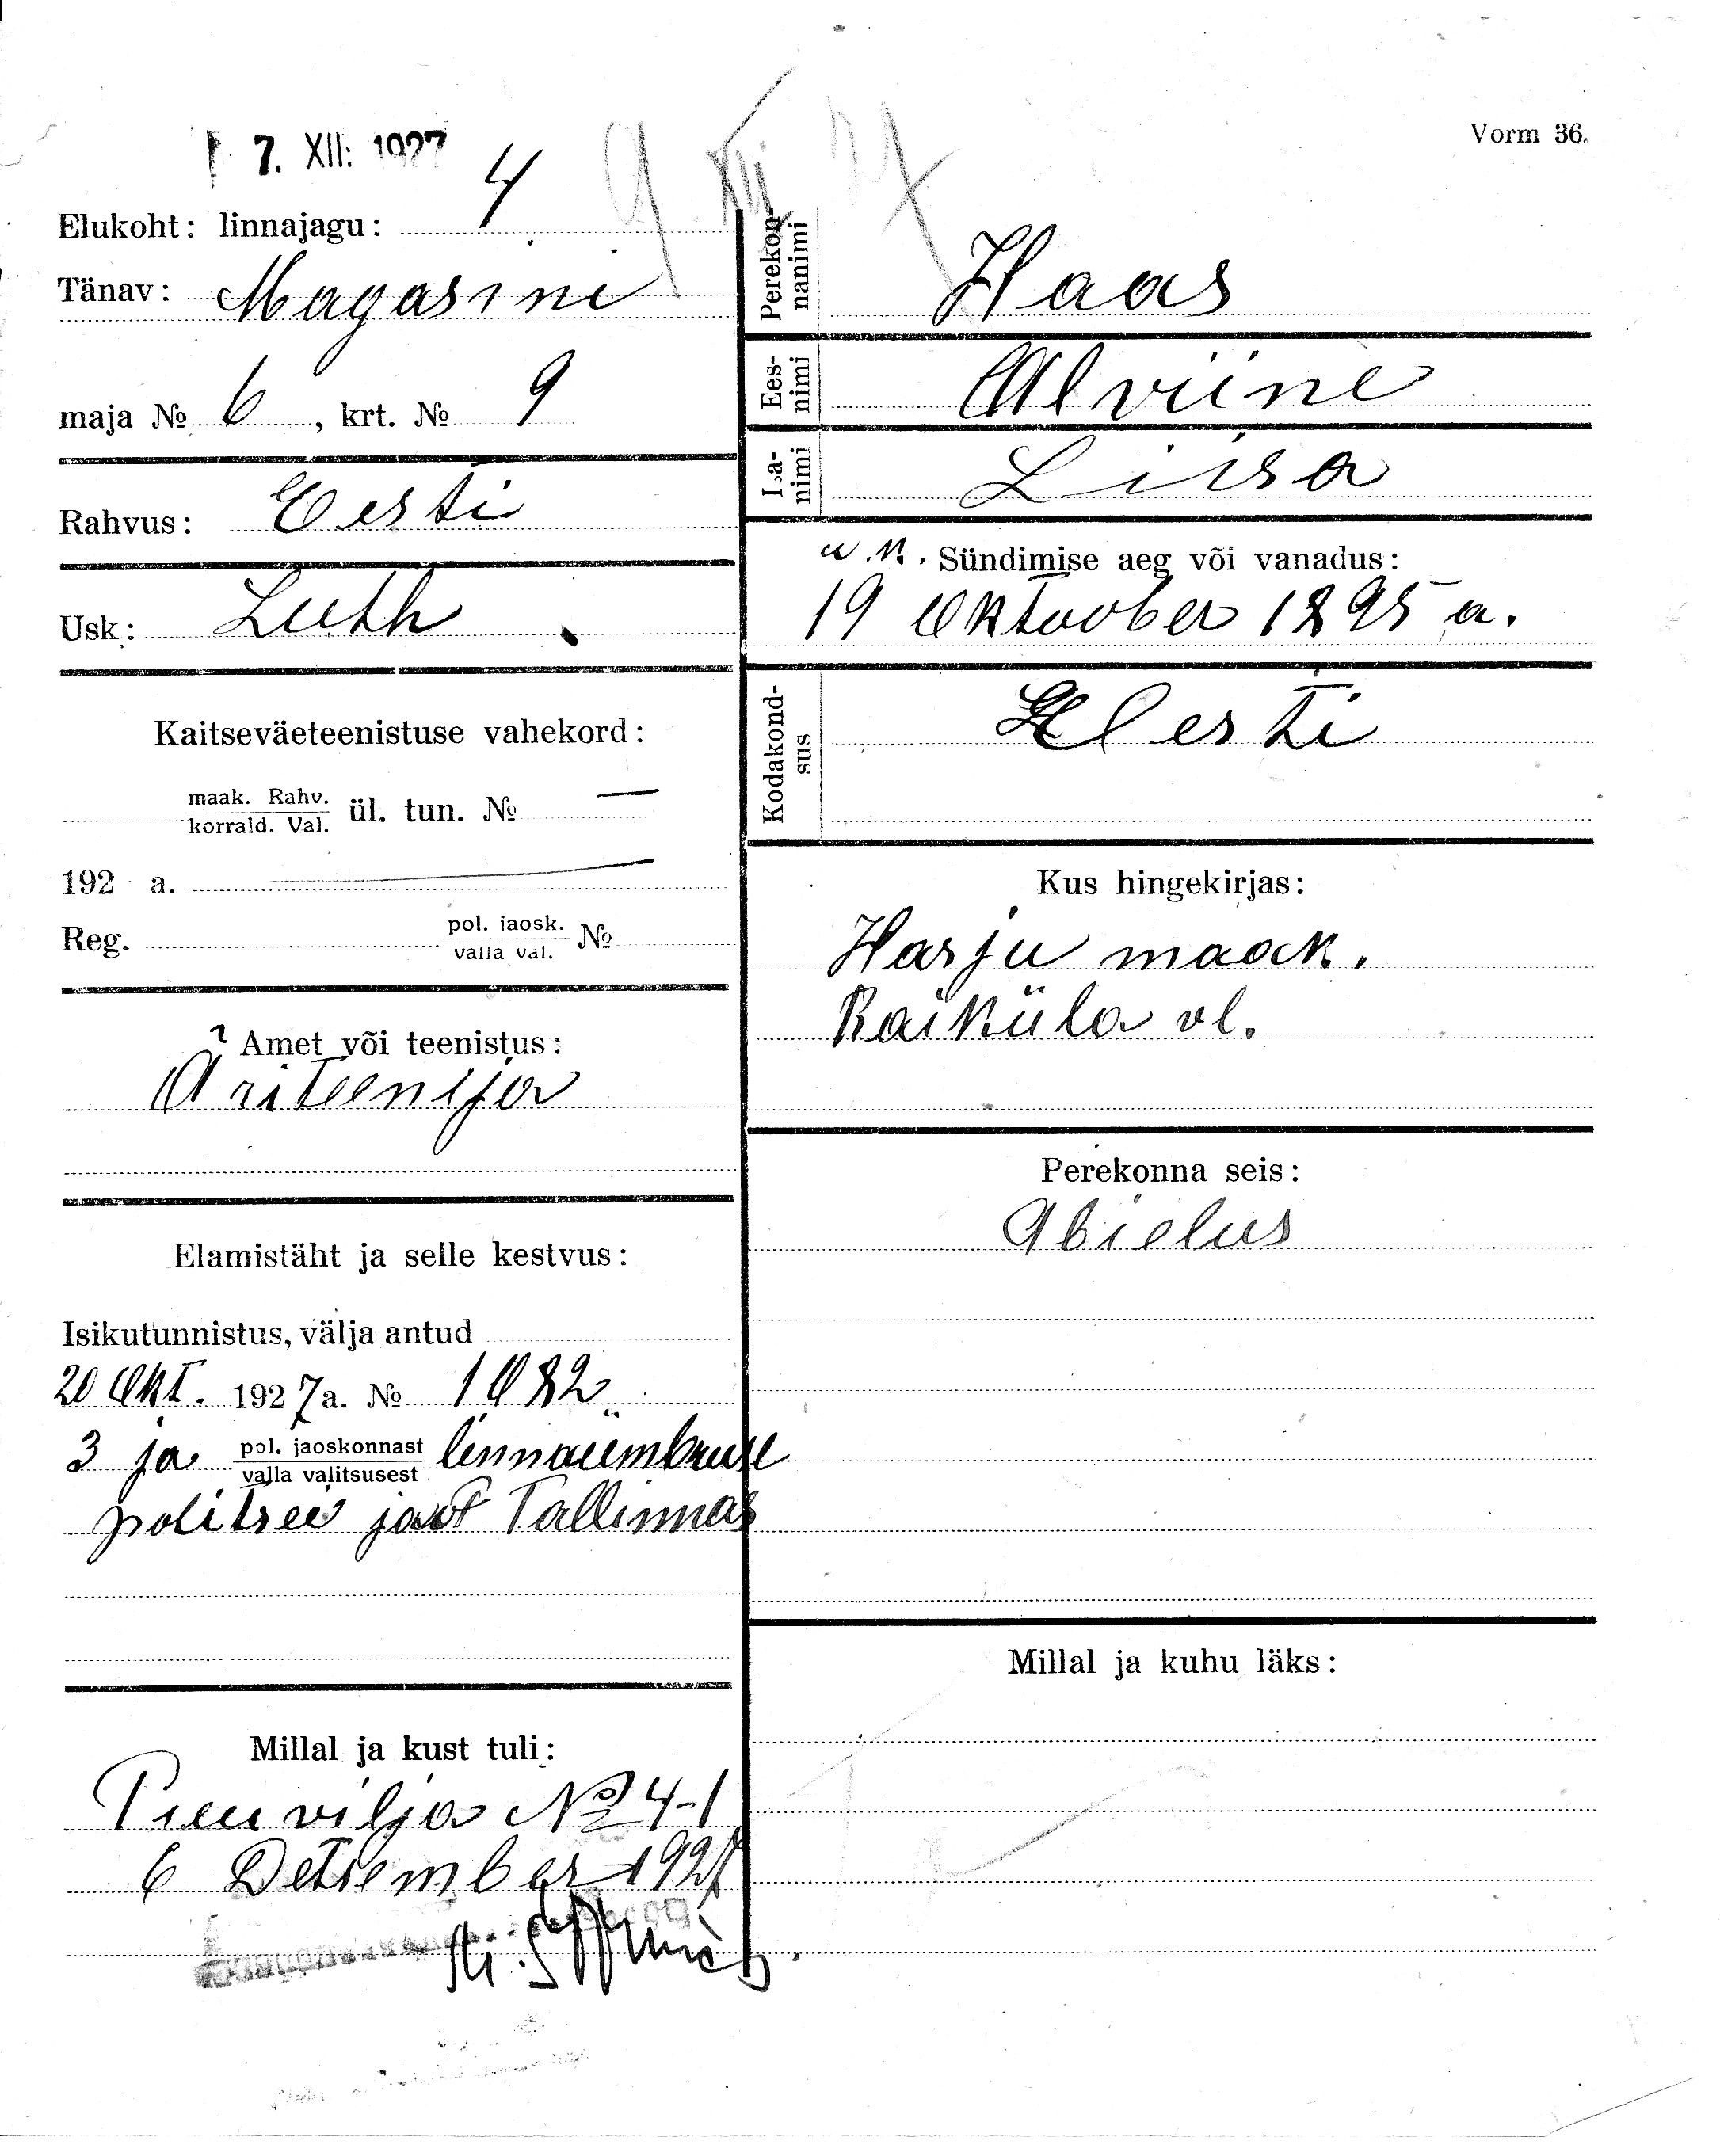 7. XII. 1927
9 XII 27
Vorm 36.
Elukoht: linnajagu: 4
Tänav: Magasini
maja № 6, krt. № 9
Rahvus: Eesti
Usk: Luth.
Kaitseväeteenistuse vahekord:
maak. Rahv.
korrald. Val. ül. tun. № —
192 a. —
Reg. pol. jaosk.
valla val. №
Amet või teenistus:
Äriteenija
Elamistäht ja selle kestvus:
Isikutunnistus, välja antud
20 Okt. 1927 a. № 1082
3 ja pol. jaoskonnast
valla valitsusest linnaümbruse
politsei jaost Tallinnas
Millal ja kust tuli:
Puuvilja № 4-1
6 Detsember 1927
Perekon-
nanimi Haas
Ees-
nimi Alviine
Isa-
nimi Liisa
u. k. Sündimise aeg või vanadus:
19 Oktoober 1895 a.
Kodakond-
sus Eesti
Kus hingekirjas:
Harju maak.
Raiküla vl.
Perekonna seis:
Abielus
Millal ja kuhu läks: